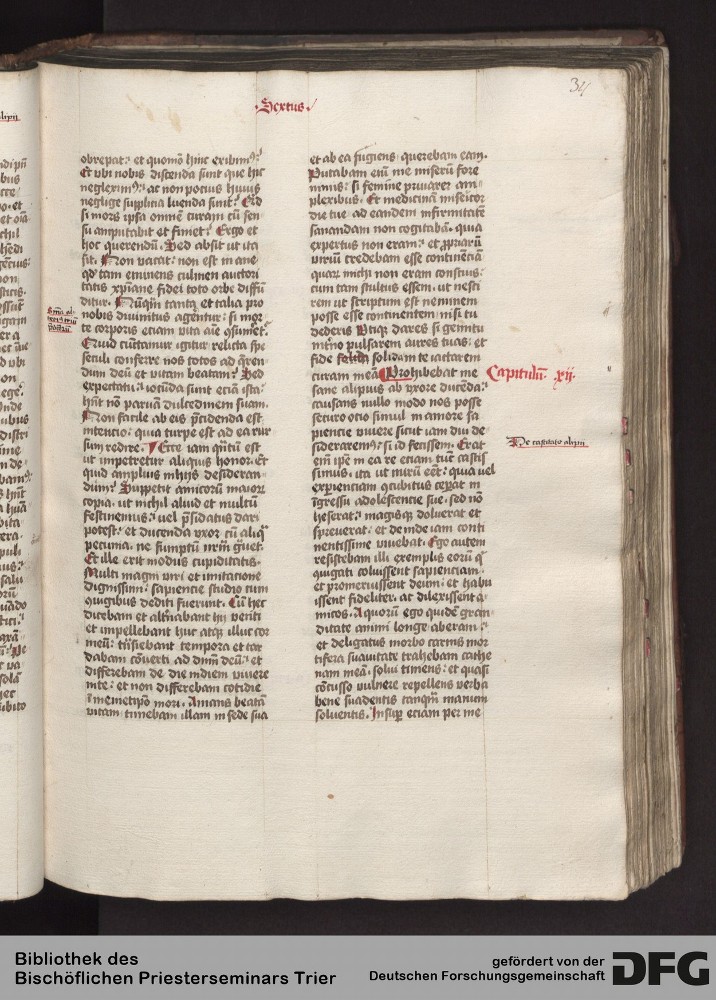 34
.Sextus.
obrepat: et quomō hinc exibimꝰ:
Et vbi nobis discenda sunt que hic
negleximꝰ: ac non pocius huius
neglige supplicia luenda sunt: Qid
si mors ipsa omnē curam cū sen
su amputabit et finiet: Ergo et
hoc querendū. Sed absit ut ita
sit. Non vacat: non est inane
qd tam eminens culmen auctori
tatis xpiane fidei toto orbe diffū
ditur. Nūqm tanta et talia pro
nobis diuinitus agerentur: si mor
te corporis etiam vita aīe
Quid cūctamur igitur relicta spe
seculi conferre nos totos ad qren
dum deū et vitam beatam: Sed
expectatu: iocūda sunt eciā ista:
hn̄t nō paruā dulcedinem suam.
Non facile ab eis p̄cidenda est
intencio: quia turpe est ad ea rur
sum redire. Ecce iam qn̄tū est
ut impetretur aliquis honor. Et
quid amplius in hijs desideran
dum: Suppetit amicorū maiorꝝ
copia. ut nichil aliud et multū
festinemus: vel p̄sidatus dari
potest: et ducenda vxor cū aliqͣ
pecunia. ne sumptū nrm̄ gͣuet:
Et ille erit modus cupiditatis.
Multi magni viri et imitatione
dignissimi: sapiencie studio cum
dediti fuerunt. Cū hec
dicebam et altͤnabant hij venti
et impellebant huc atqꝫ illuc cor
meū: trāsiebant tempora et tar
dabam cōuerti ad dn̄m deū: et
differebam de die in diem viuere
in te: et non differebam cotidie
ī memetipō mori. Amans beatā
vitam: timebam illam in sede sua
et ab ea fugiens querebam eam.
Putabam eni me miserū fore
nimis: si femine priuarer am
plexibus. Et medicinā misericor
die tue ad eandem infirmitatē
sanandam non cogitabā. quia
expertus non eram: et ꝓpriarū
viriū credebam esse continēciā
quarꝝ michi non eram conscius:
cum tam stultus essem. ut nesci
rem ut scriptum est neminem
posse esse continentem nisi tu
dederis Vtiqꝫ dares si gemitu
int̄no pulsarem aures tuas: et
fide solida solidum te iactarem
curam meā. Prohibebat me
sane alipius ab vxore ducēda:
causans nullo modo nos posse
securo ocio simul in amore sa
piencie viuere sicut iam diu de
siderarem: si id fecissem. Erat
em̄ ip̄e in ea re etiam tūc castis
simus. ita ut mirū eēt: quia vel
expienciam ꝯcubitus ceperat in
īgressu adolescencie sue. sed nō
heserat: magisqꝫ doluerat et
spreuerat: et deinde iam conti
nentissime viuebat. Ego autem
resistebam illi exemplis eorū qͥ
ꝯiugati coluissent sapienciam:
et promeruissent deum: et habu
issent fideliter. ac dilexissent a
micos. A quorū ego quidē gran
ditate animi longe aberam:
et deligatus morbo carnis mor
tifera suauitate trahebam cathe
nam meā. solui timens: et quasi
cōcusso vulnere repellens verba
bene suadentis tanqm̄ manum
soluentis. Insup eciam per me
Capitulū xij.
De castitate alipii
Bibliothek des
Bischöflichen Priesterseminars Trier
gefördert von der
Deutschen Forschungsgemeinschaft
DFG